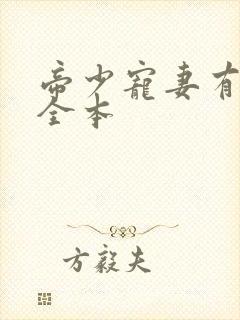 帝少寵妻有
全本
方毅夫